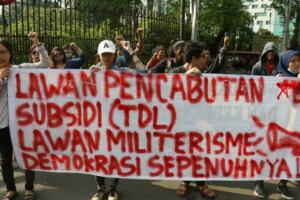 LAWAN PENCABUTAN
SUBSIDI (TDL)
LAWAN MILITERISME
DEMOKRASI SEPENUHNYA!